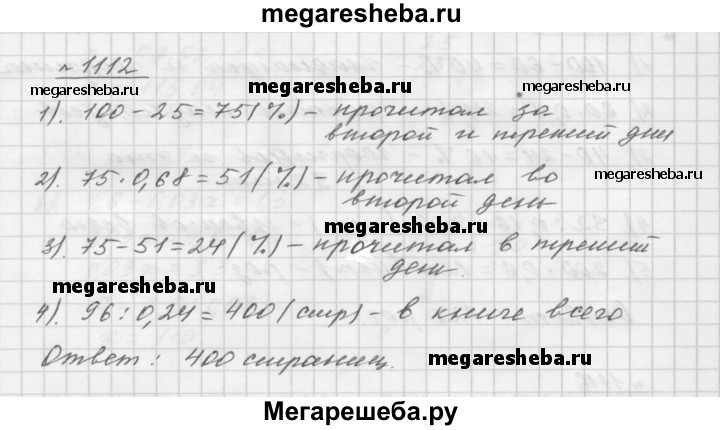 megaresheba.ru
№ 1112
megaresheba.ru
megaresheba.ru
1). 100 - 25 = 75 (%) - прочитал за
второй и третий дни
2). 75 · 0,68 = 51 (%) - прочитал во
megaresheba.ru
второй день
megaresheba.ru
3). 75 - 51 = 24 (%) - прочитал в третий
день.
megaresheba.ru
4). 96 : 0,24 = 400 (стр) - в книге всего
Ответ: 400 страниц.
megaresheba.ru
Мегарешеба.ру